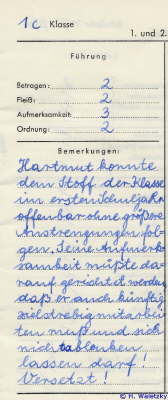 1c Klasse 1. und 2.
Führung
Betragen: 2
Fleiß: 2
Aufmerksamkeit: 3
Ordnung: 2
Bemerkungen:
Hartmut konnte
dem Stoff der Klasse
im ersten Schuljahr
offenbar ohne größere
Anstrengungen fol-
gen. Seine Aufmerk-
samkeit müßte da-
rauf gerichtet werden,
daß er auch künftig
zielstrebig mitarbei-
ten muß und sich
nicht ablenken
lassen darf!
Versetzt!
© H. Waletzky